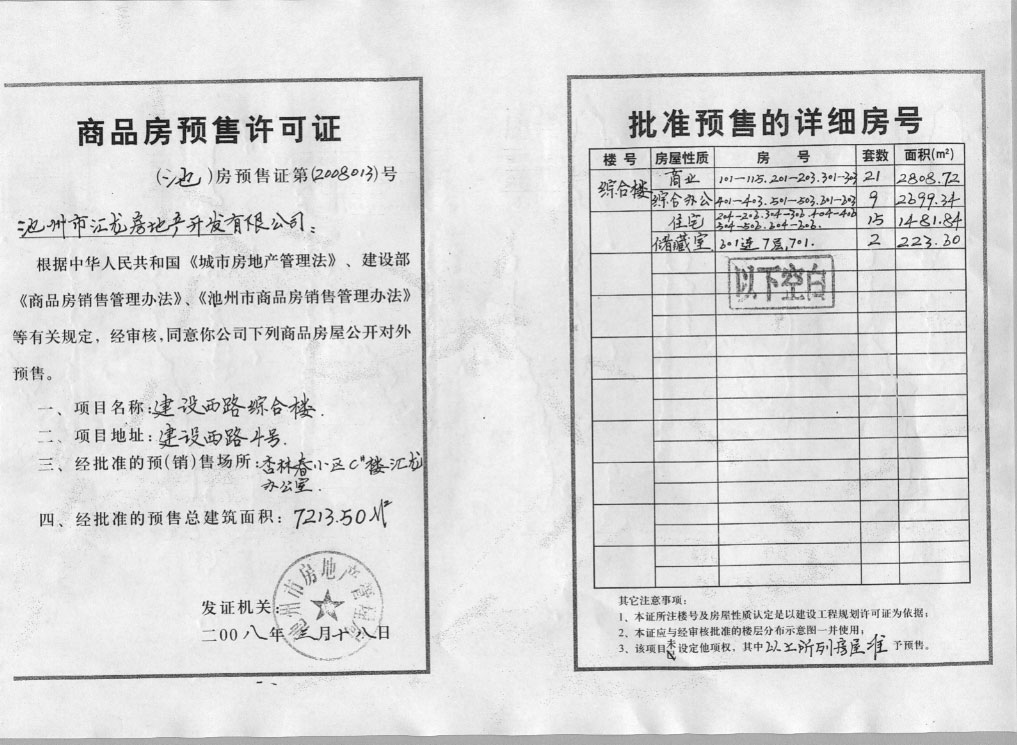 商品房预售许可证
(池)房预售证第(2008013)号
池州市汇龙房地产开发有限公司:
根据中华人民共和国《城市房地产管理法》、建设部
《商品房销售管理办法》、《池州市商品房销售管理办法》
等有关规定，经审核,同意你公司下列商品房屋公开对外
预售。
一、项目名称:建设西路综合楼.
二、项目地址:建设西路4号.
三、经批准的预(销)售场所:杏林春小区C#楼汇龙
办公室.
四、经批准的预售总建筑面积:7213.50M²
池州市房地产管理局
发证机关:
二00八年三月十八日
批准预售的详细房号
楼号 房屋性质 房号 套数 面积(m²)
综合楼 商业 101-115.201-203.301-303 21 2808.72
综合办公 401-403.501-503.301-303 9 2699.34
住宅 204-206.304-306.404-406 15 1481.84
504-506.604-606.
储藏室 601连7层,701. 2 223.30
以下空白
其它注意事项:
1、本证所注楼号及房屋性质认定是以建设工程规划许可证为依据;
2、本证应与经审核批准的楼层分布示意图一并使用;
3、该项目未设定他项权，其中以上所列房屋准予预售。